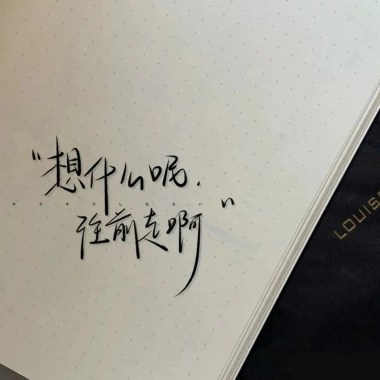 “想什么呢.
往前走啊”
LOUIS